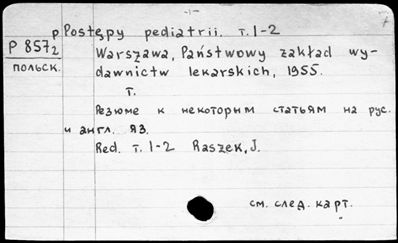 -1-
p Postępy pediatrii. т. 1-2
P 8572
польск.
Warszawa, Państwowy zakład wy-
dawnictw lekarskich, 1955.
т.
Резюме к некоторым статьям на рус.
и англ. яз.
Red. т. 1-2 Raszek, J.
см. след. карт.